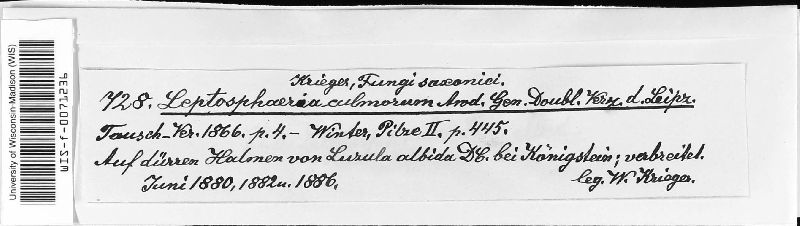 University of Wisconsin-Madison (WIS)
WIS-f-0071236
Krieger, Fungi saxonici.
728. Leptosphaeria culmorum Awd. Gen. Doubl. Verz. d. Leipz.
Tausch-Ver. 1866. p. 4. – Winter, Pilze II. p. 445.
Auf dürren Halmen von Luzula albida DC. bei Königstein; verbreitet.
Juni 1880, 1882 u. 1886.
leg. W. Krieger.